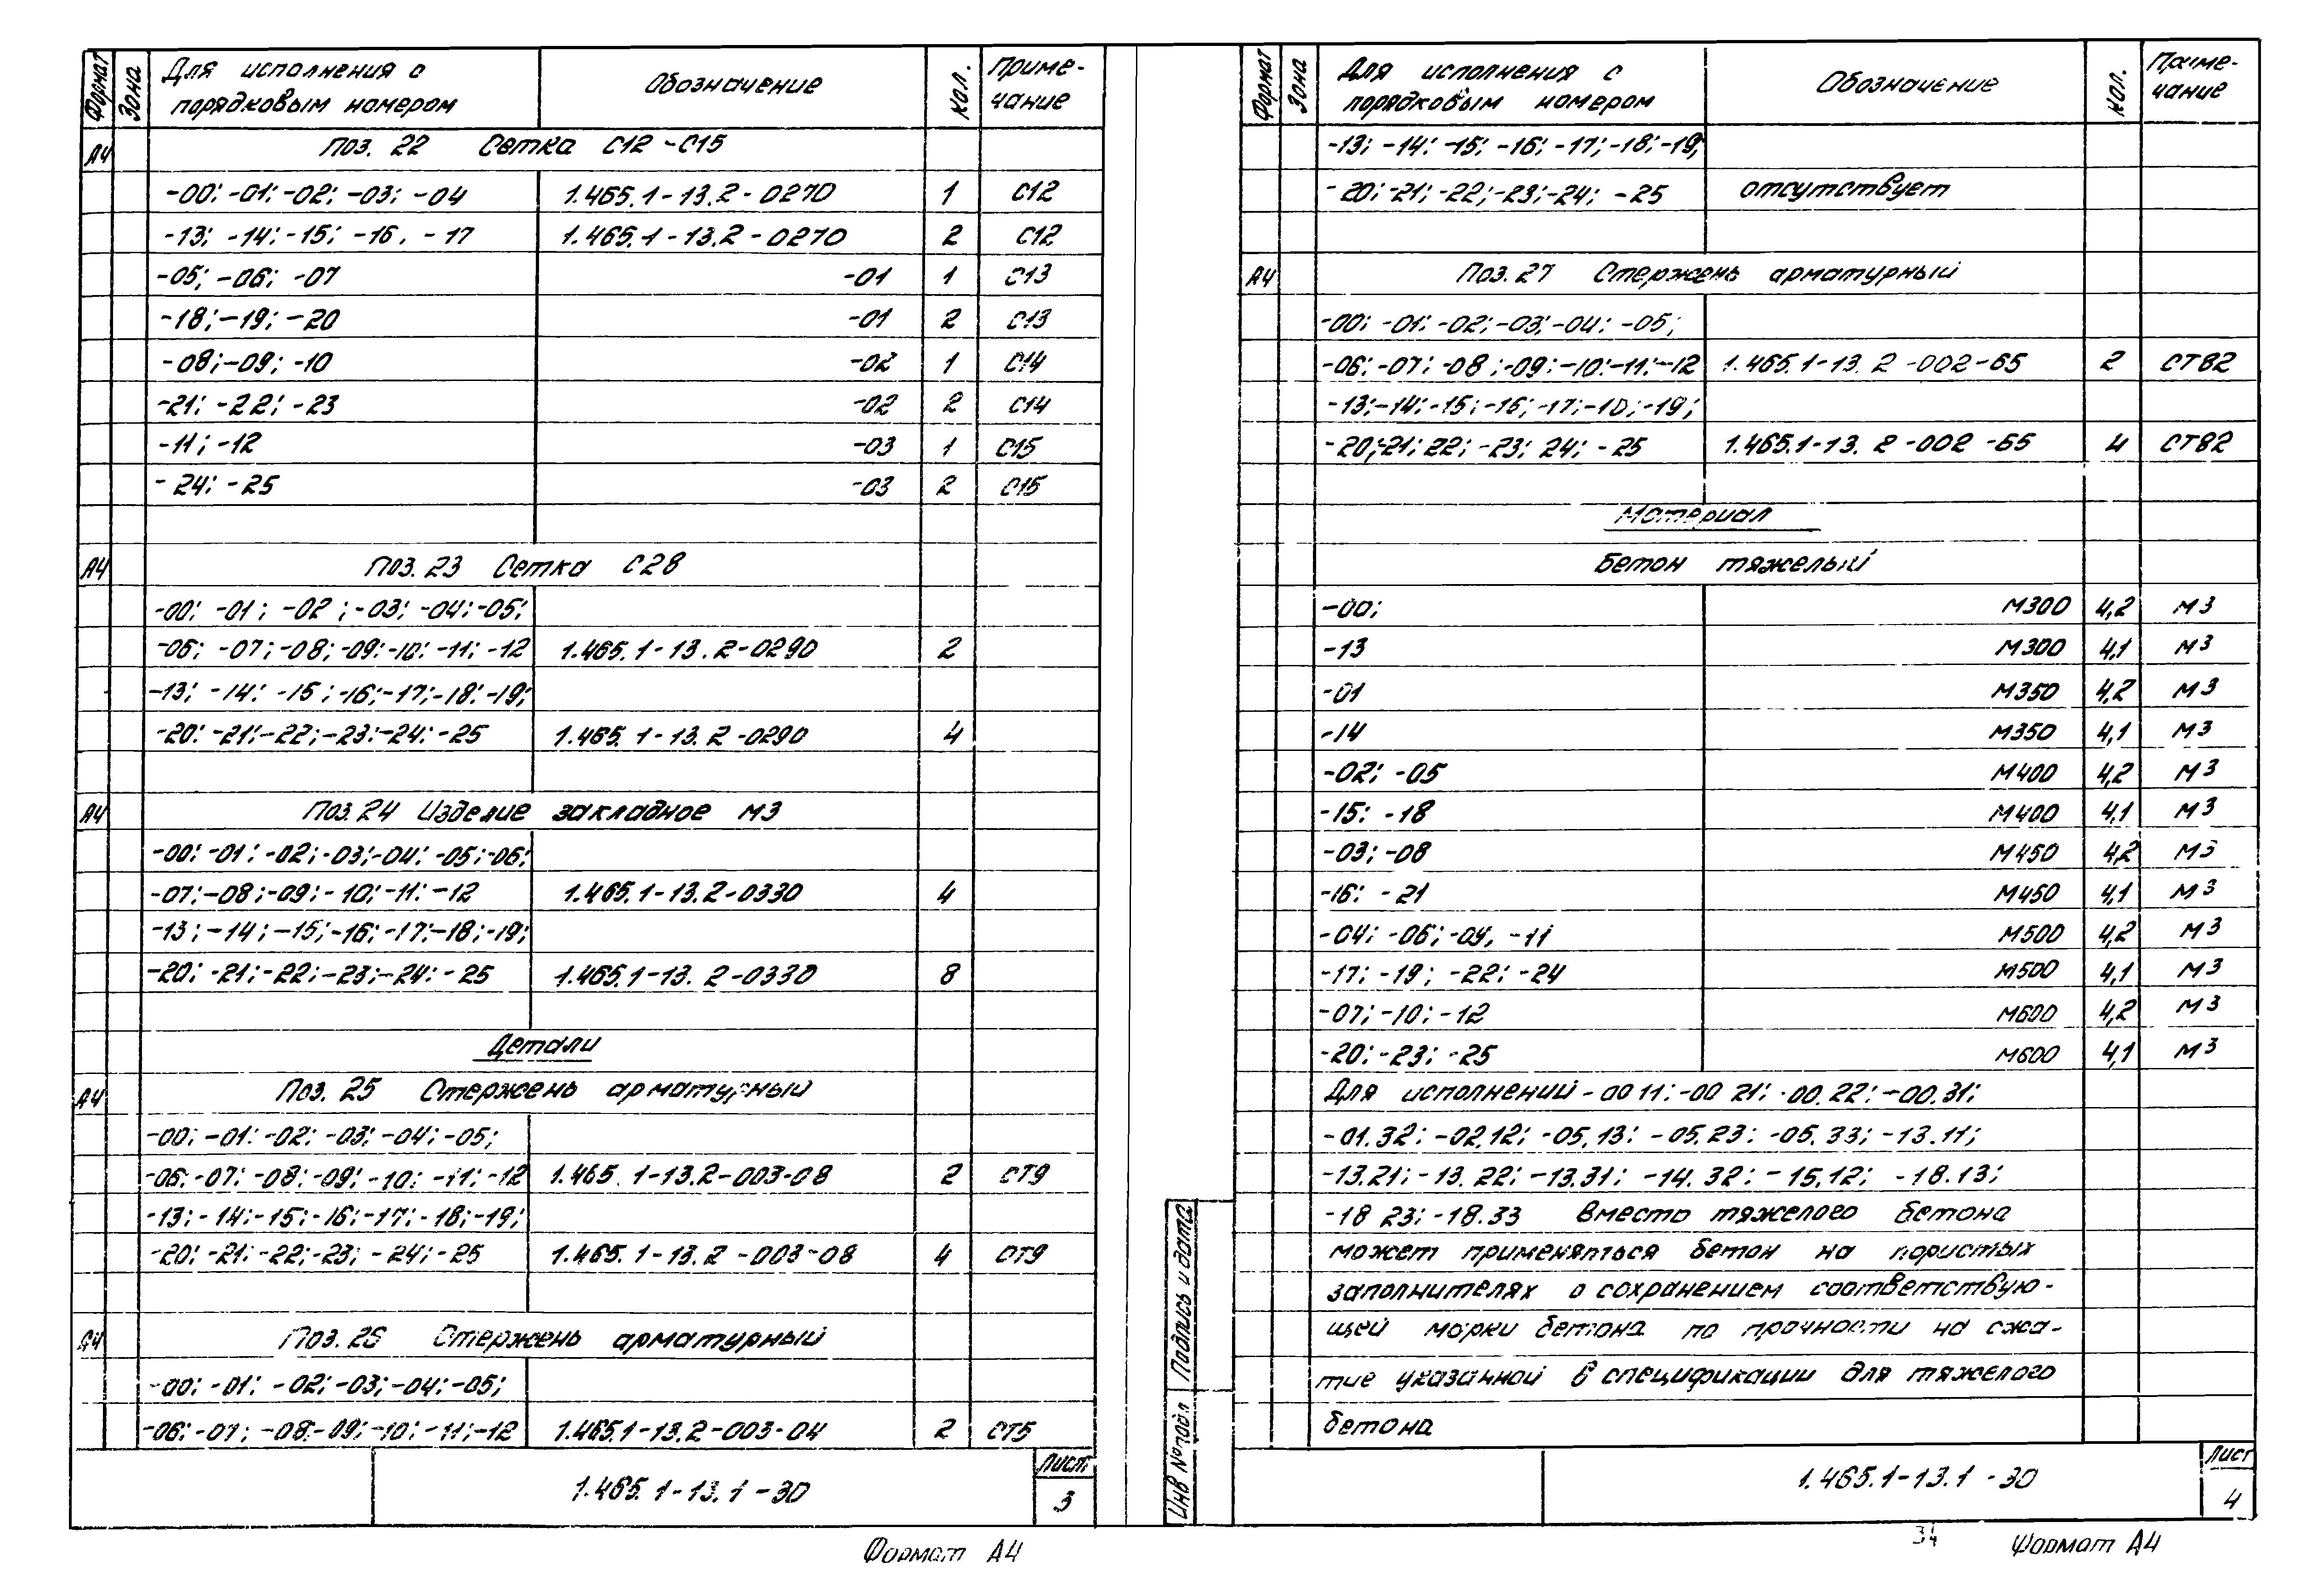 Формат Зона Для исполнения с порядковым номером Обозначение Кол. Приме-чание
А4 Поз. 22 Сетка С12 -С15
-00; -01; -02; -03; -04 1.465.1-13.2-0270 1 С12
-13; -14; -15; -16, -17 1.465.1-13.2-0270 2 С12
-05; -06; -07 -01 1 С13
-18; -19; -20 -01 2 С13
-08; -09; -10 -02 1 С14
-21; -22; -23 -02 2 С14
-11; -12 -03 1 С15
-24; -25 -03 2 С15
А4 Поз. 23 Сетка С28
-00; -01; -02; -03; -04; -05;
-06; -07; -08; -09; -10; -11; -12 1.465.1-13.2-0290 2
-13; -14; -15; -16; -17; -18; -19;
-20; -21; -22; -23; -24; -25 1.465.1-13.2-0290 4
А4 Поз. 24 Изделие закладное М3
-00; -01; -02; -03; -04; -05; -06;
-07; -08; -09; -10; -11; -12 1.465.1-13.2-0330 4
-13; -14; -15; -16; -17; -18; -19;
-20; -21; -22; -23; -24; -25 1.465.1-13.2-0330 8
Детали
А4 Поз. 25 Стержень арматурный
-00; -01; -02; -03; -04; -05;
-06; -07; -08; -09; -10; -11; -12 1.465.1-13.2-003-08 2 СТ9
-13; -14; -15; -16; -17; -18; -19;
-20; -21; -22; -23; -24; -25 1.465.1-13.2-003-08 4 СТ9
А4 Поз. 26 Стержень арматурный
-00; -01; -02; -03; -04; -05;
-06; -07; -08; -09; -10; -11; -12 1.465.1-13.2-003-04 2 СТ5
1.465.1-13.1-30 Лист 3
Формат А4
Формат Зона Для исполнения с порядковым номером Обозначение Кол. Приме-чание
-13; -14; -15; -16; -17; -18; -19;
-20; -21; -22; -23; -24; -25 отсутствует
А4 Поз. 27 Стержень арматурный
-00; -01; -02; -03; -04; -05;
-06; -07; -08; -09; -10; -11; -12 1.465.1-13.2-002-65 2 СТ82
-13; -14; -15; -16; -17; -18; -19;
-20; -21; 22; -23; 24; -25 1.465.1-13.2-002-65 4 СТ82
Материал
Бетон тяжелый
-00; М300 4,2 м3
-13 М300 4,1 м3
-01 М350 4,2 м3
-14 М350 4,1 м3
-02; -05 М400 4,2 м3
-15; -18 М400 4,1 м3
-03; -08 М450 4,2 м3
-16; -21 М450 4,1 м3
-04; -06; -09, -11 М500 4,2 м3
-17; -19; -22; -24 М500 4,1 м3
-07; -10; -12 М600 4,2 м3
-20; -23; -25 М600 4,1 м3
Для исполнений -00 11; -00 21; -00.22; -00.31;
-01.32; -02.12; -05.13; -05.23; -05.33; -13.11;
-13.21; -13.22; -13.31; -14.32; -15.12; -18.13;
-18 23; -18.33 Вместо тяжелого бетона
может применяться бетон на пористых
заполнителях с сохранением соответствую-
щей марки бетона по прочности на сжа-
тие указанной в спецификации для тяжелого
бетона
Инв № подл Подпись и дата
1.465.1-13.1-30 Лист 4
34 Формат А4